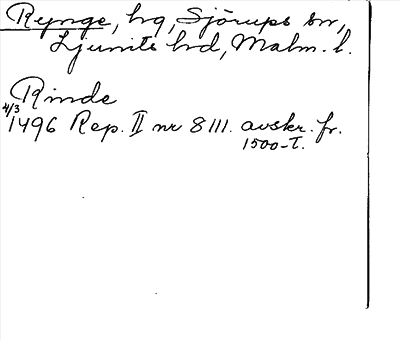 Rynge, hg, Sjörups sn,
Ljunits hd, Malm. l.
Rinde
4/3
1496 Rep. II nr 8111. avskr. fr.
1500-T.